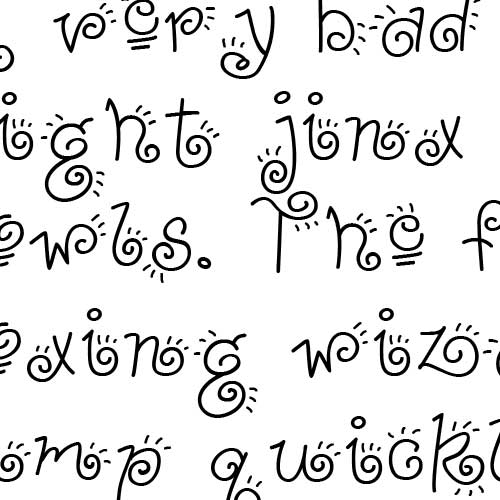 very bad
ight jinx
owls. The f
oxing wiz
ump quickl